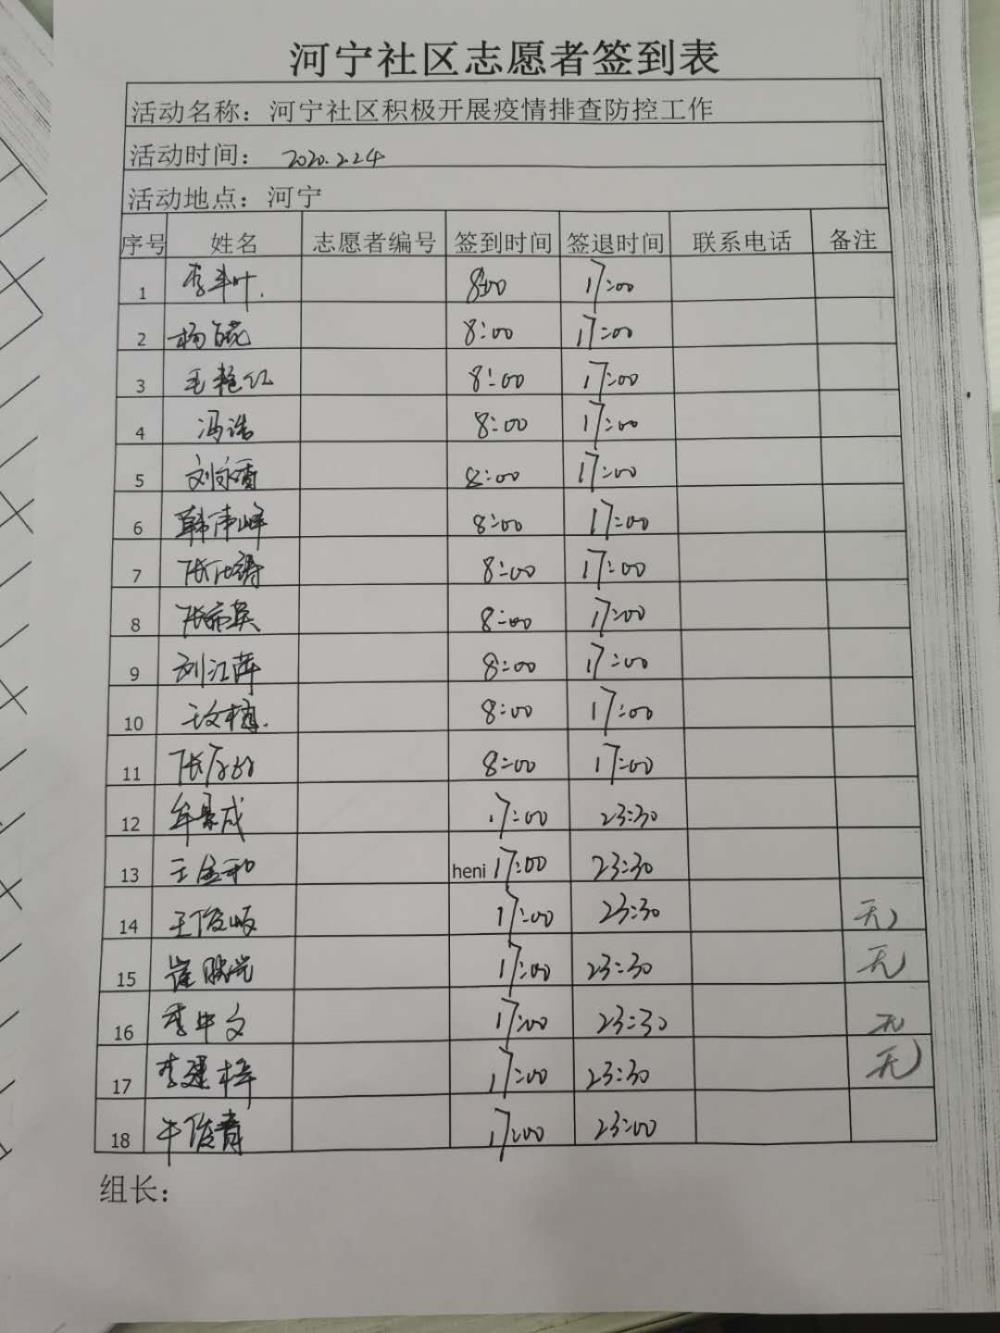 河宁社区志愿者签到表
活动名称：河宁社区积极开展疫情排查防控工作
活动时间： 2020.2.24
活动地点：河宁
序号 姓名 志愿者编号 签到时间 签退时间 联系电话 备注
1 8:00 17:00
2 8:00 17:00
3 毛艳红 8:00 17:00
4 冯浩 8:00 17:00
5 8:00 17:00
6 韩伟峰 8:00 17:00
7 8:00 17:00
8 8:00 17:00
9 刘江萍 8:00 17:00
10 8:00 17:00
11 8:00 17:00
12 牟景成 17:00 23:30
13 heni 17:00 23:30
14 王俊岐 17:00 23:30 无
15 17:00 23:30 无
16 李中文 17:00 23:30 无
17 李建梓 17:00 23:30 无
18 牛俊青 17:00 23:00
组长：